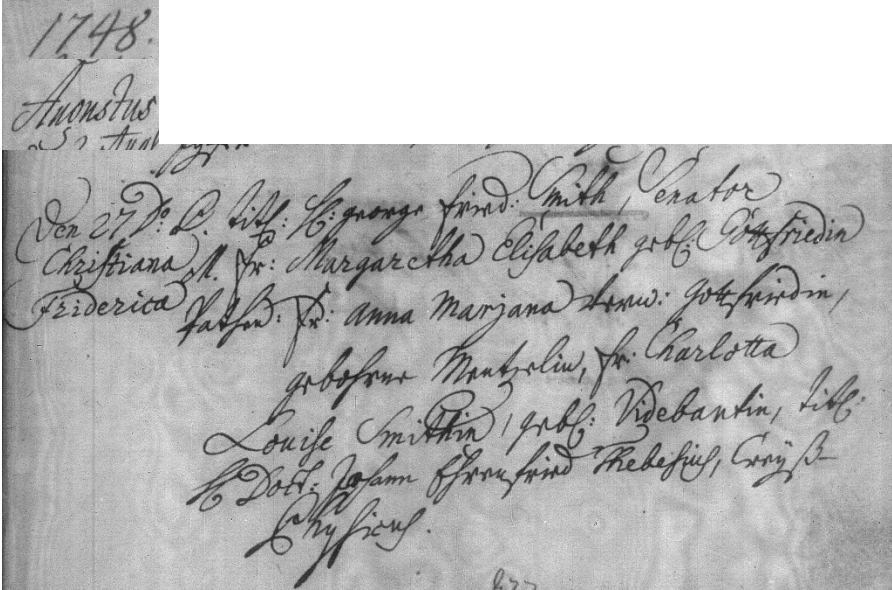 1748.
Augustus
den 27 do. P. titl: H: george fried: Smith, Senator
Christiana M. fr: Margaretha Elisabeth gebl: Gottfriedin
Friderica Pathen: fr: Anna Marjana verw: Gottfriedin,
gebohrne Mentzelin, fr: Charlotta
Louise Smithin, gebl: Videbantin, titl:
H Doct: Johann Ehrenfried Thebesius, Creyß-
Physicus.